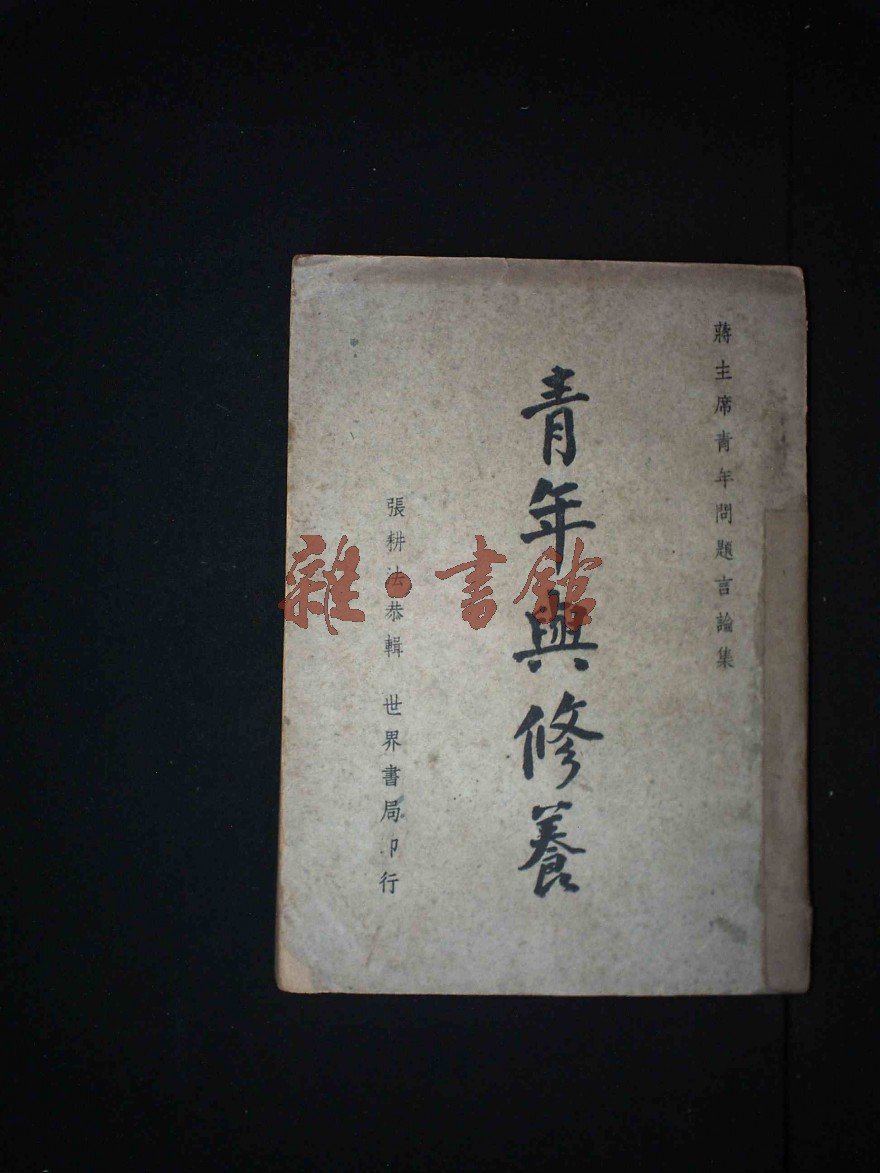 蔣主席青年問題言論集
青年與修養
張耕法恭輯 世界書局印行
雜·書館